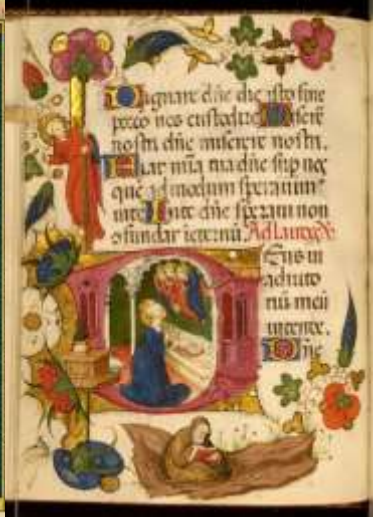 Dignare dñe die isto sine
pccō nos custodire Miserē
nostri dñe miserere nostri.
Fiat mīa tua dñe sup nos
que admodum sperauim⁹
in te In te dñe speraui non
cōfundar ieternū Ad laudes
Deus in
adiuto
riū meū
intende.
Dñe